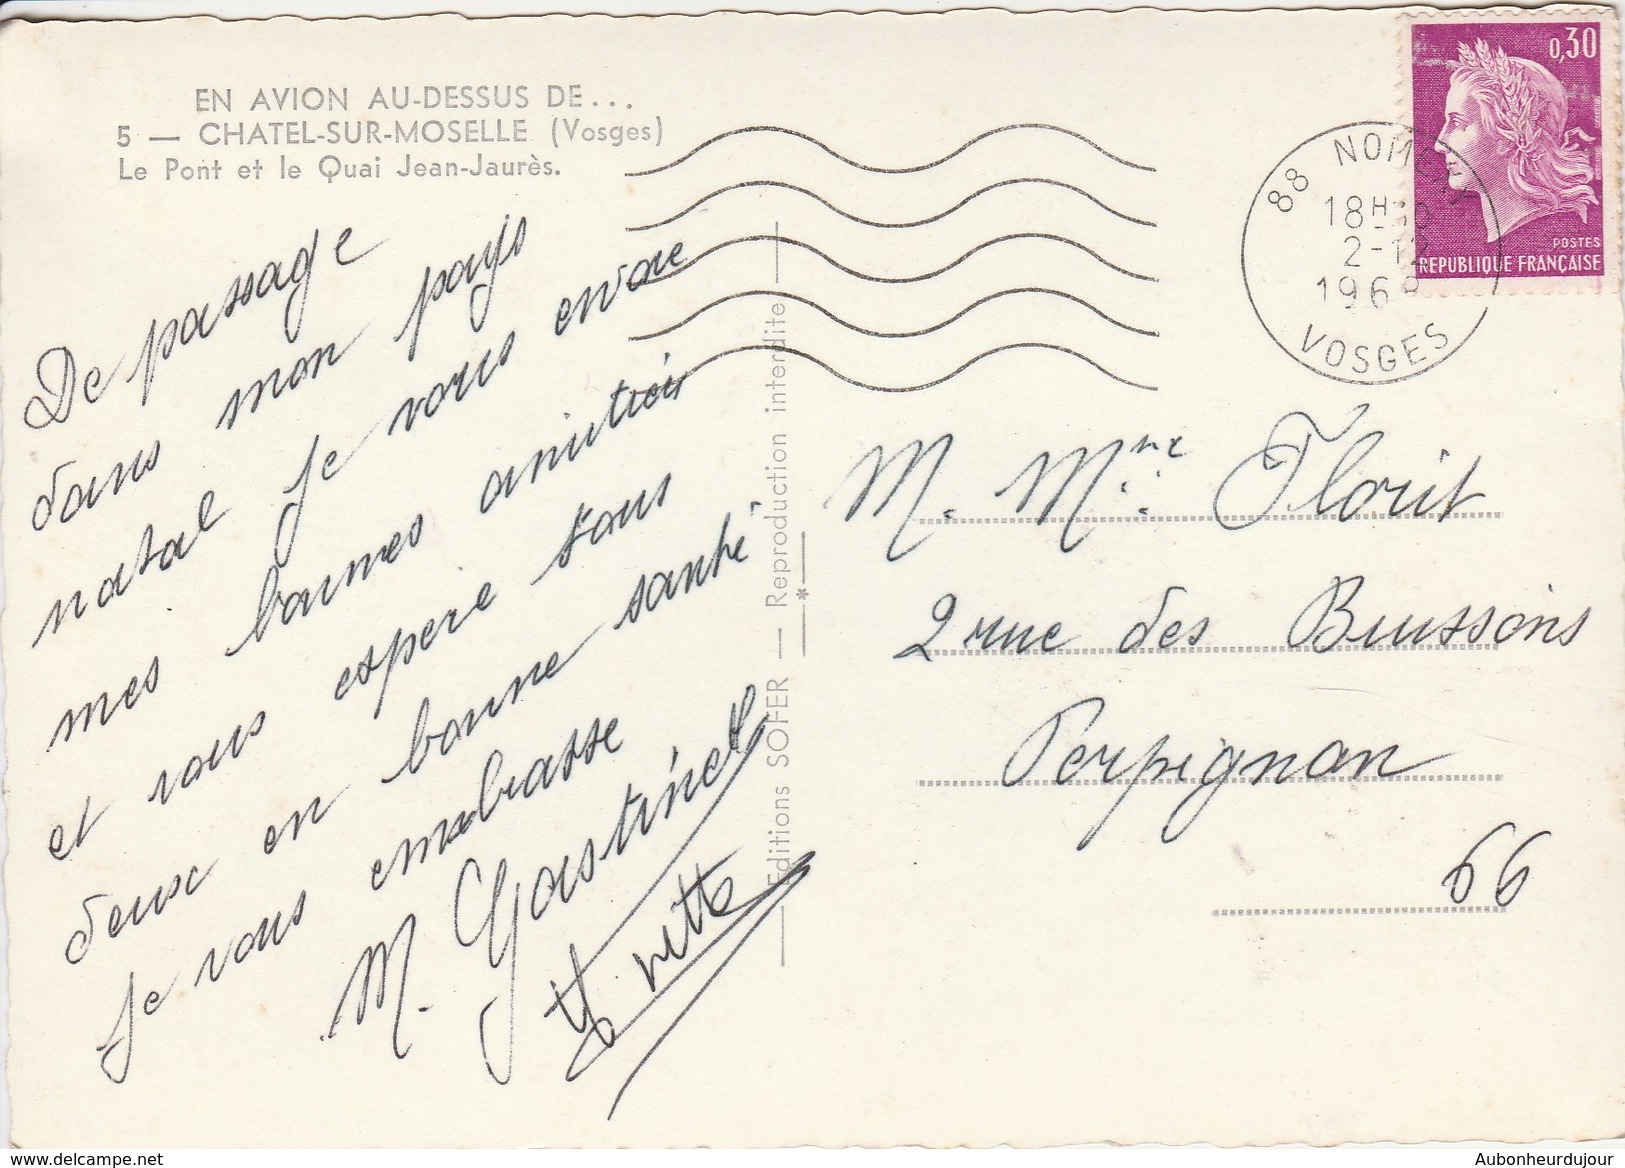 EN AVION AU-DESSUS DE...
5 — CHATEL-SUR-MOSELLE (Vosges)
Le Pont et le Quai Jean-Jaurès.
De passage
dans mon pays
natal je vous envoie
mes bonnes amitiés
et vous espere tous
deux en bonne santé
je vous embrasse
M. Gastinel
Editions SOFER — Reproduction interdite
0,30
POSTES
REPUBLIQUE FRANÇAISE
88 NOMEXY
18H
2-12
1968
VOSGES
M. Mme Florit
2 rue des Buissons
Perpignan
66
www.delcampe.net
Aubonheurdujour